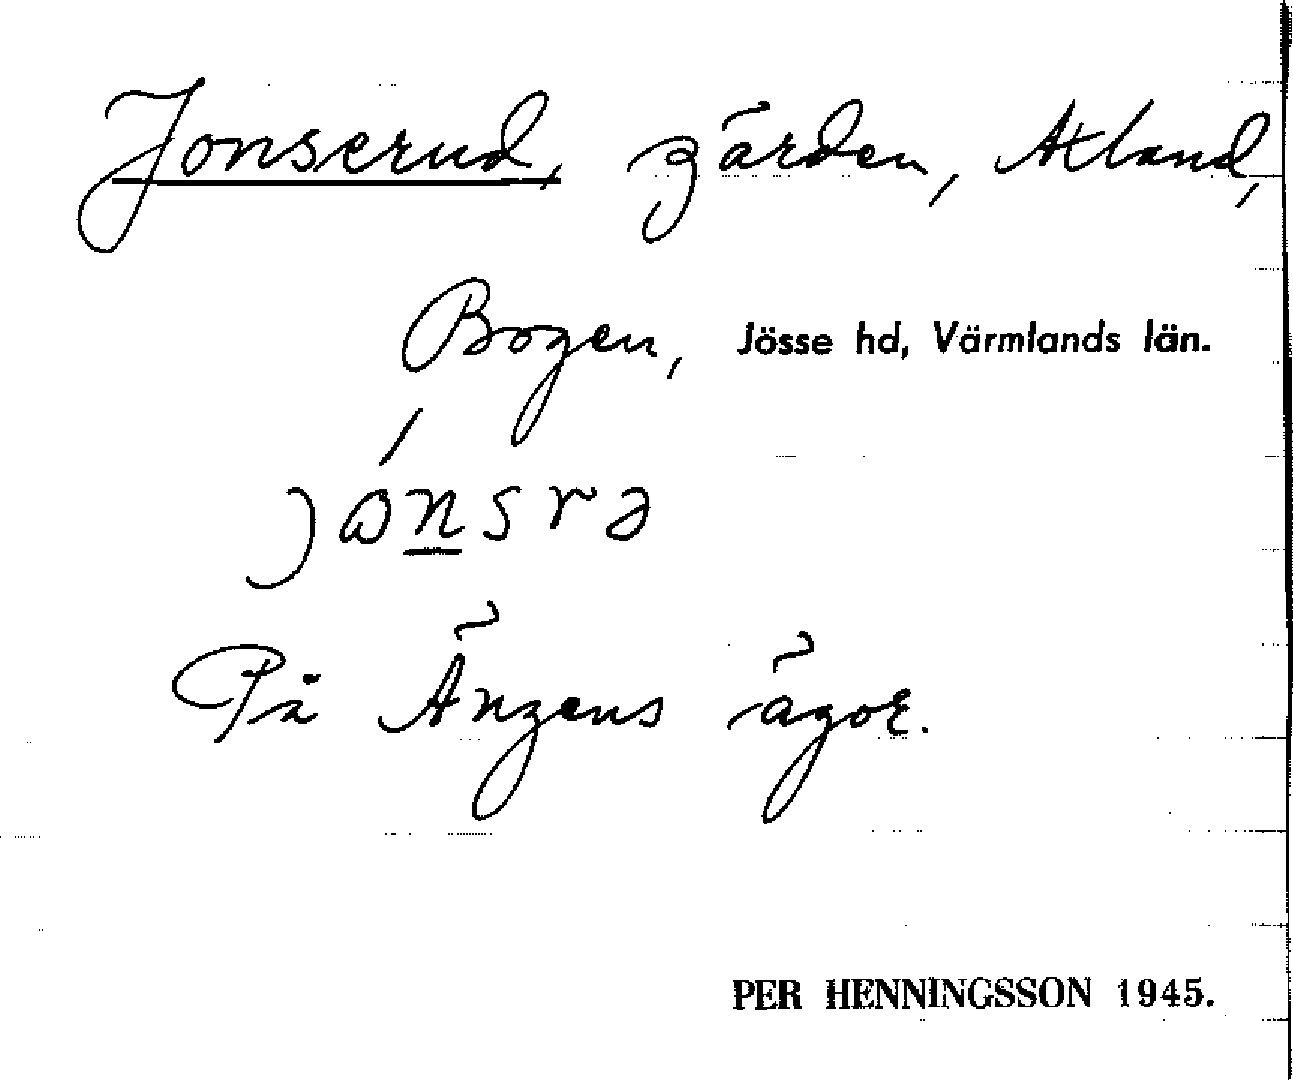 Jonserud, gärden,
Bogen, Jösse hd, Värmlands län.
jɷ́n̲srə
På Ängens ägor.
PER HENNINGSSON 1945.